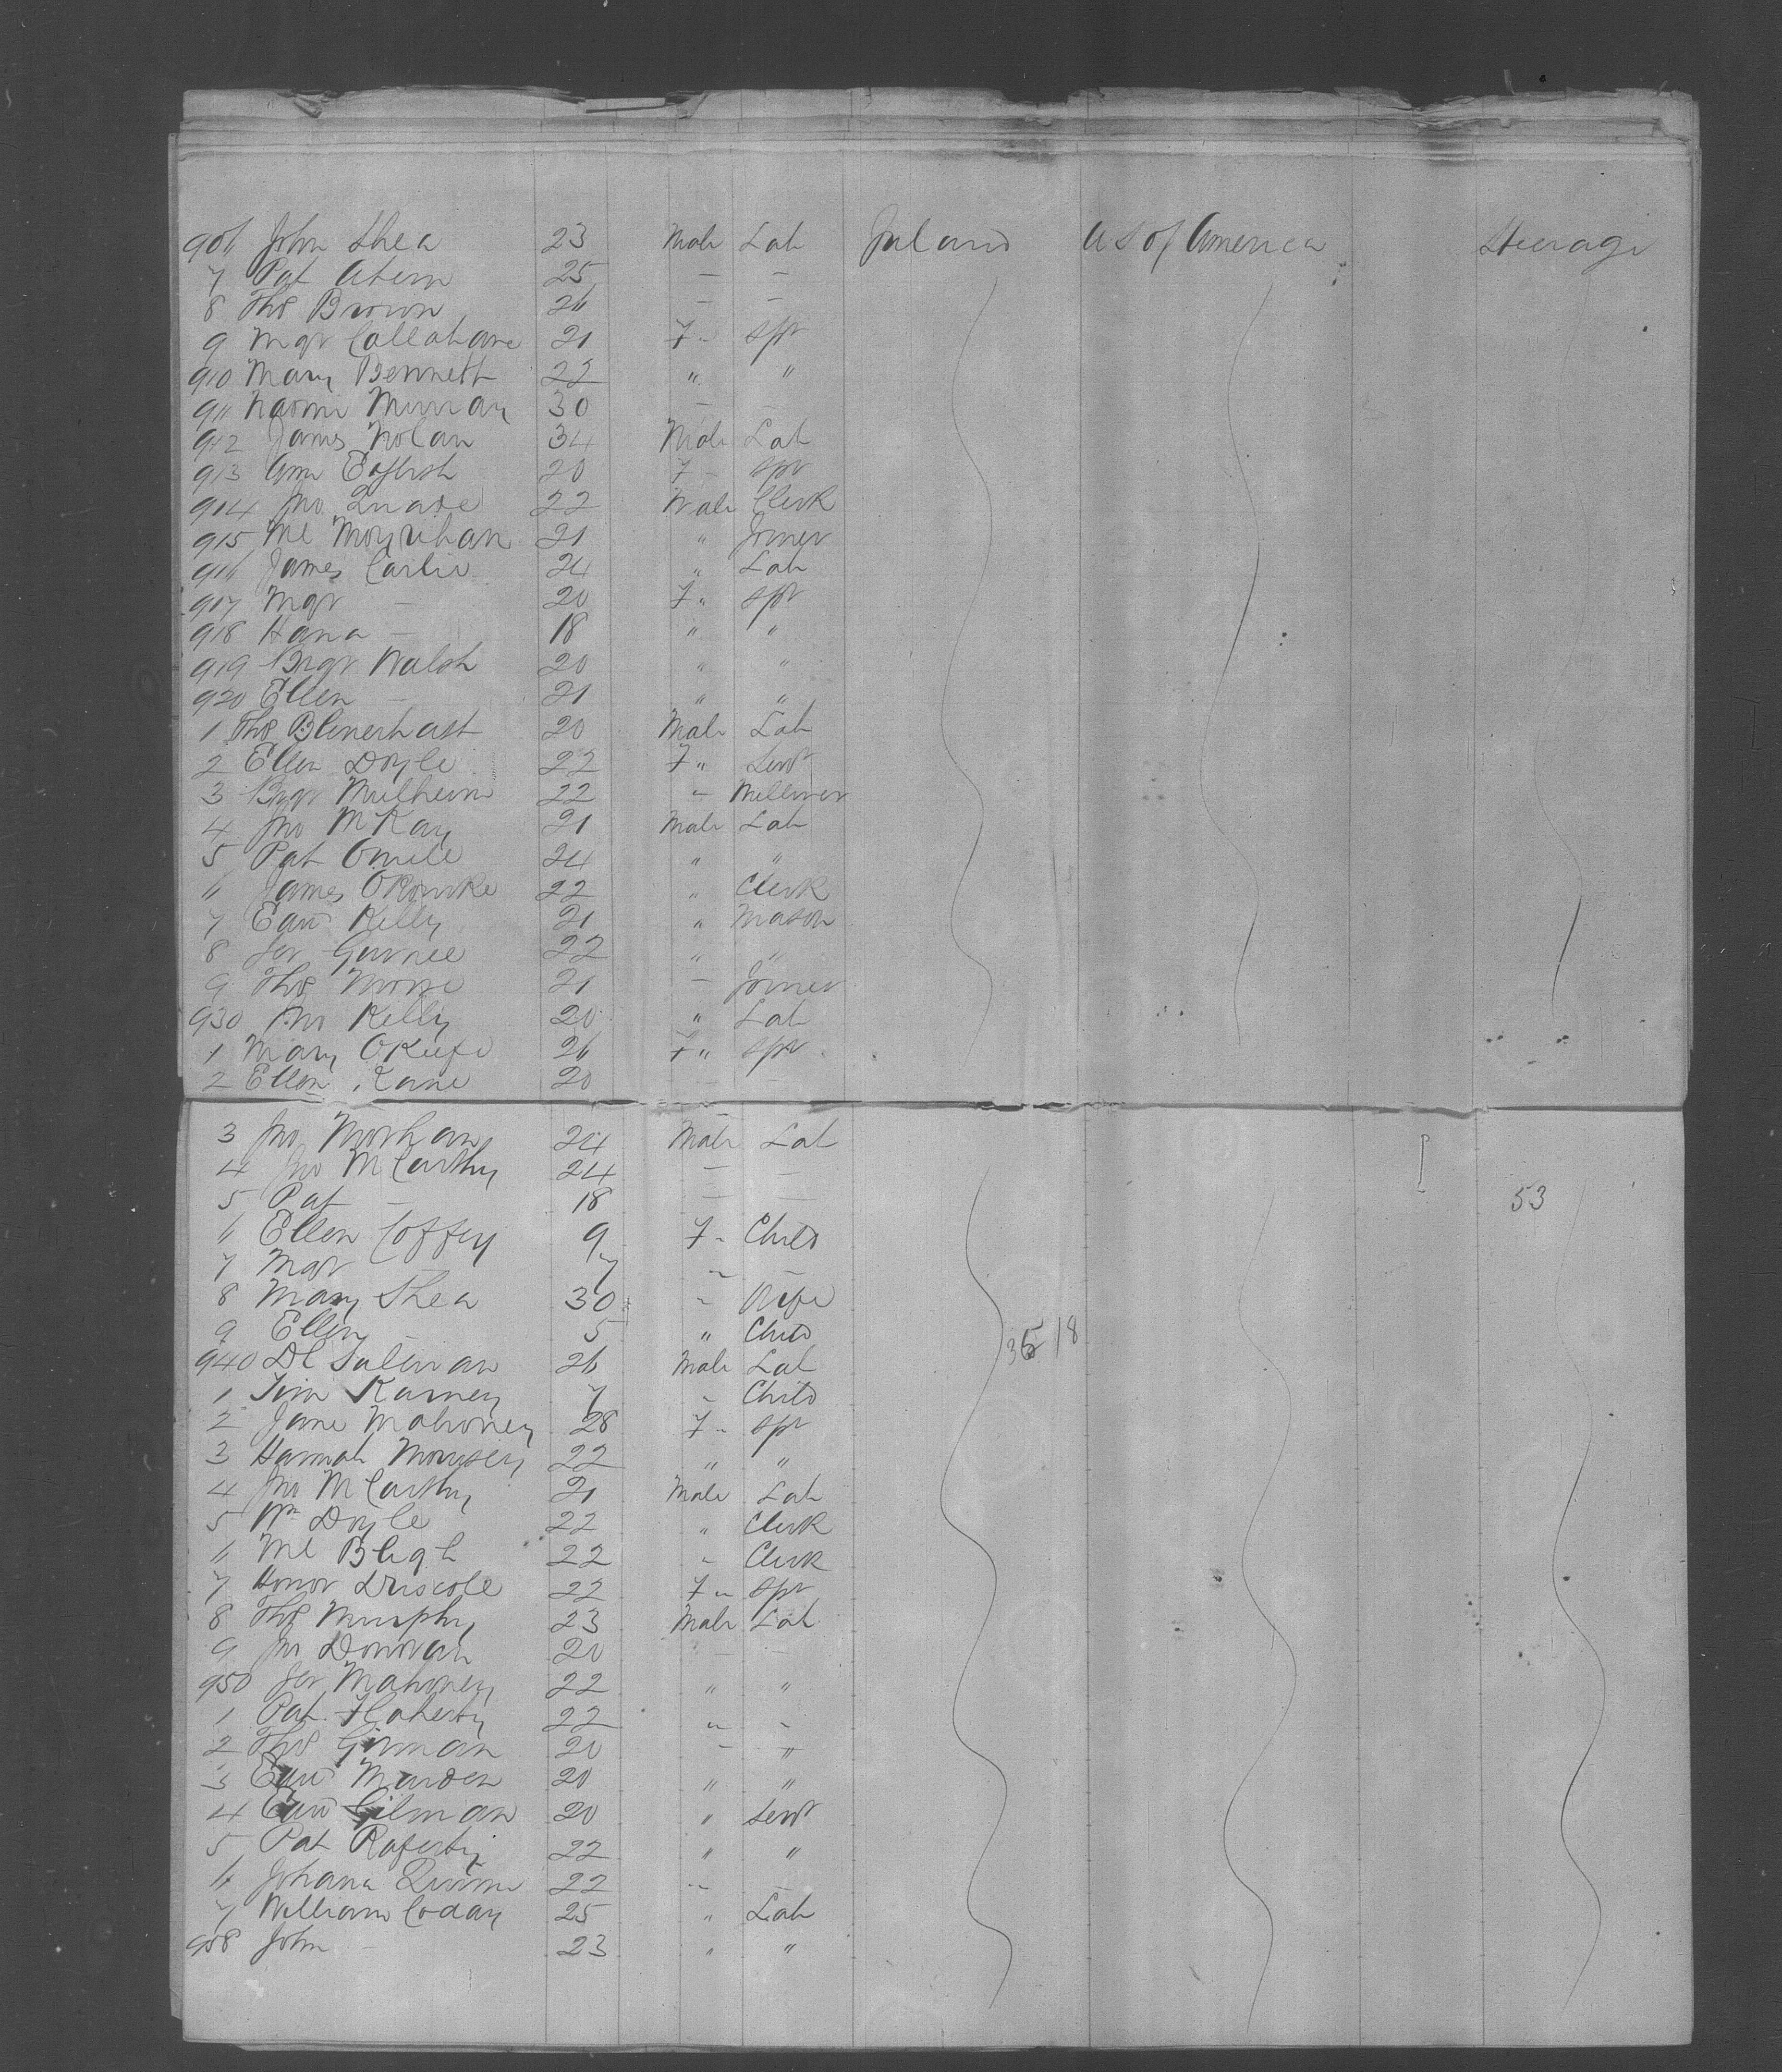 906 John Shea 23 Male Lab Ireland U S of America Steerage
7 Pat Ahern 25 — —
8 Thos Brown 26 — —
9 Mgr Callahane 21 F " Spr
910 Mary Bennett 22 " "
911 Naomi Murray 30 — —
912 James Nolan 34 Male Lab
913 Ann English 20 F — Spr
914 Jno Quade 22 Male Clerk
915 Ml Moynihan 21 " Joiner
916 James Carlie 24 " Lab
917 Mgr — 20 F " Spr
918 Hana — 18 " "
919 Brgr Walsh 20 " "
920 Ellen — 21 " "
1 Thos Blenerhast 20 Male Lab
2 Ellen Doyle 22 F " Servt
3 Brgr Mulhern 22 " Milliner
4 Jno McKay 21 Male Lab
5 Pat Oneill 24 " "
6 James ORourke 22 " Clerk
7 Edwd Kelly 21 " Mason
8 Jer 22 " "
9 Thos 21 — Joiner
930 Jno Kelly 20 " Lab
1 Mary OKeefe 26 F " Spr
2 Ellen Kane 20 — —
3 Jno 24 Male Lab
4 Jno McCarthy 24 — —
5 Pat — 18 — — 53
6 Ellen Coffey 9 F " Child
7 Mgr — 7 " —
8 Mary Shea 30 " Wife
9 Ellen — 5 " Child 35 18
940 Dl Sulivan 26 Male Lab
1 Tim Karney 7 " Child
2 Jane Mahoney 28 F " Spr
3 Hannah Morrisey 22 " "
4 Jno McCarthy 21 Male Lab
5 Wm Doyle 22 " Clerk
6 Ml Bligh 22 " Clerk
7 Honor Driscole 22 F " Spr
8 Thos Murphy 23 Male Lab
9 Jno Donovan 20 — —
950 Jer Mahoney 22 " "
1 Pat Flaherty 22 " "
2 Thos Gorman 20 — "
3 Edwd Marden 20 " "
4 Edwd Gilman 20 " Servt
5 Pat Raferty 22 " "
6 Johana Quinn 22 " —
7 William Coday 25 " Lab
958 John — 23 " "